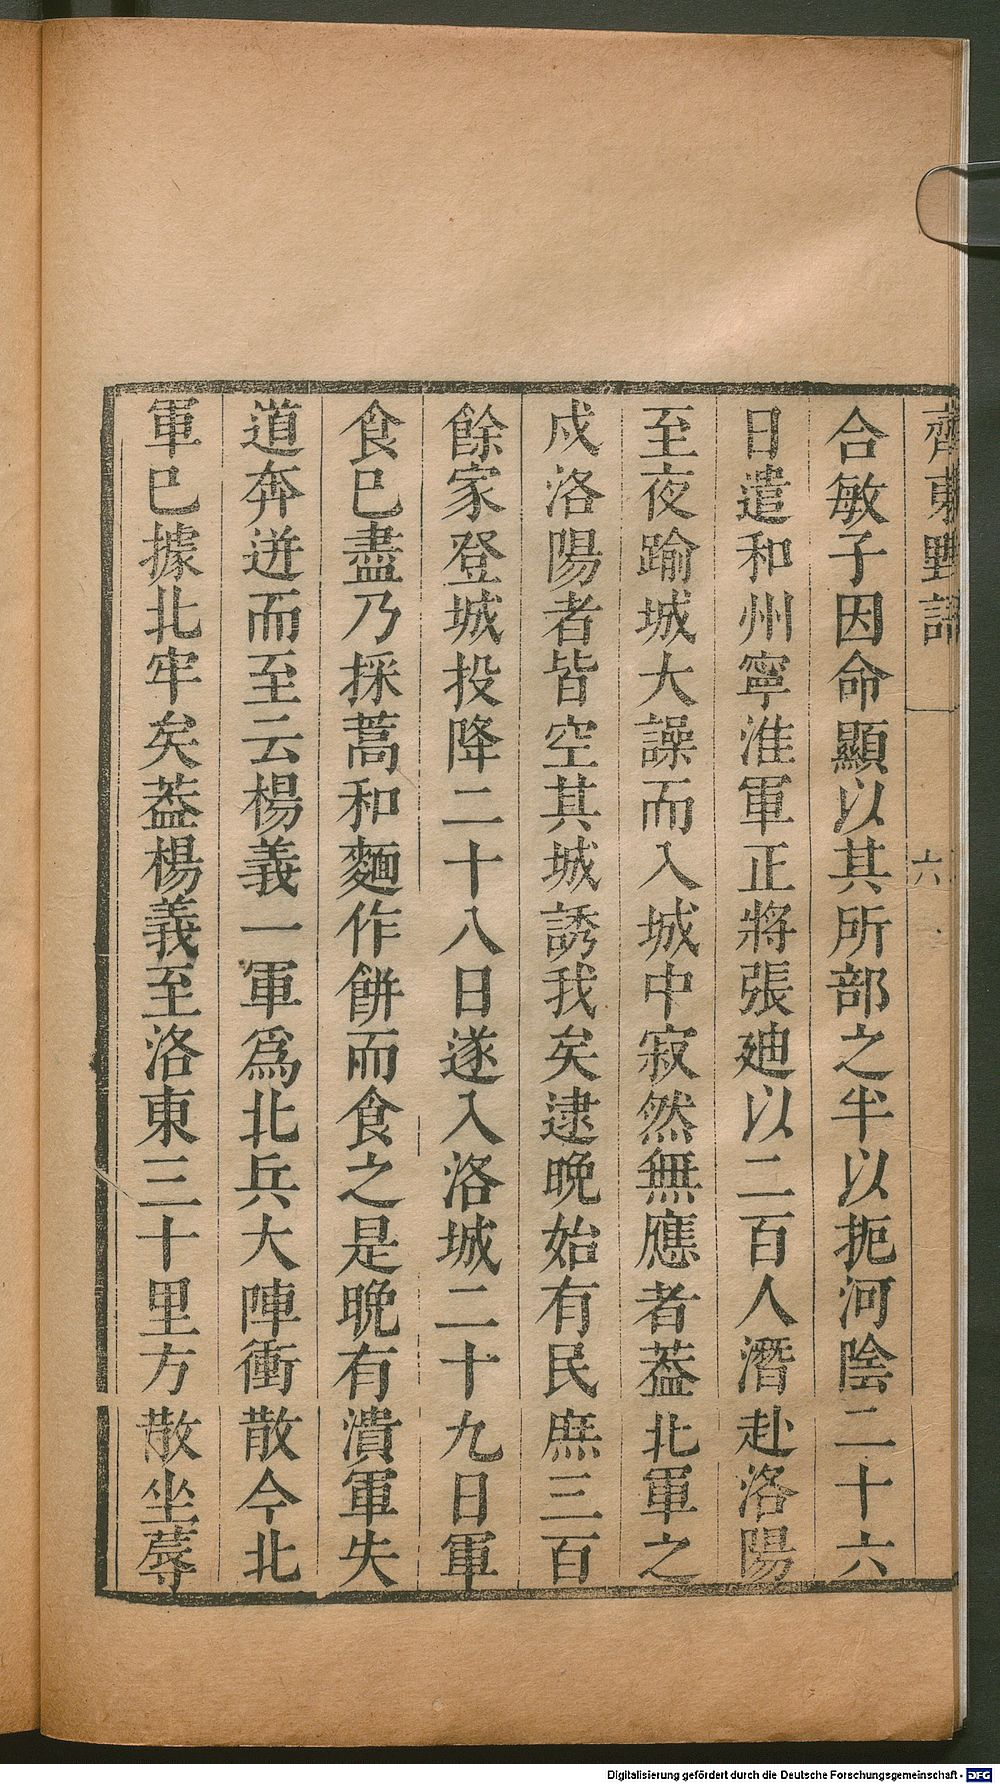 齊東野語
六
合敏子因命顯以其所部之半以扼河陰二十六
日遣和州寧淮軍正將張廸以二百人潛赴洛陽
至夜踰城大譟而入城中寂然無應者葢北軍之
戍洛陽者皆空其城誘我矣逮晚始有民庶三百
餘家登城投降二十八日遂入洛城二十九日軍
食巳盡乃採蒿和麵作餅而食之是晚有潰軍失
道奔迸而至云楊義一軍爲北兵大陣衝散今北
軍巳據北牢矣葢楊義至洛東三十里方散坐蓐
Digitalisierung gefördert durch die Deutsche Forschungsgemeinschaft - DFG